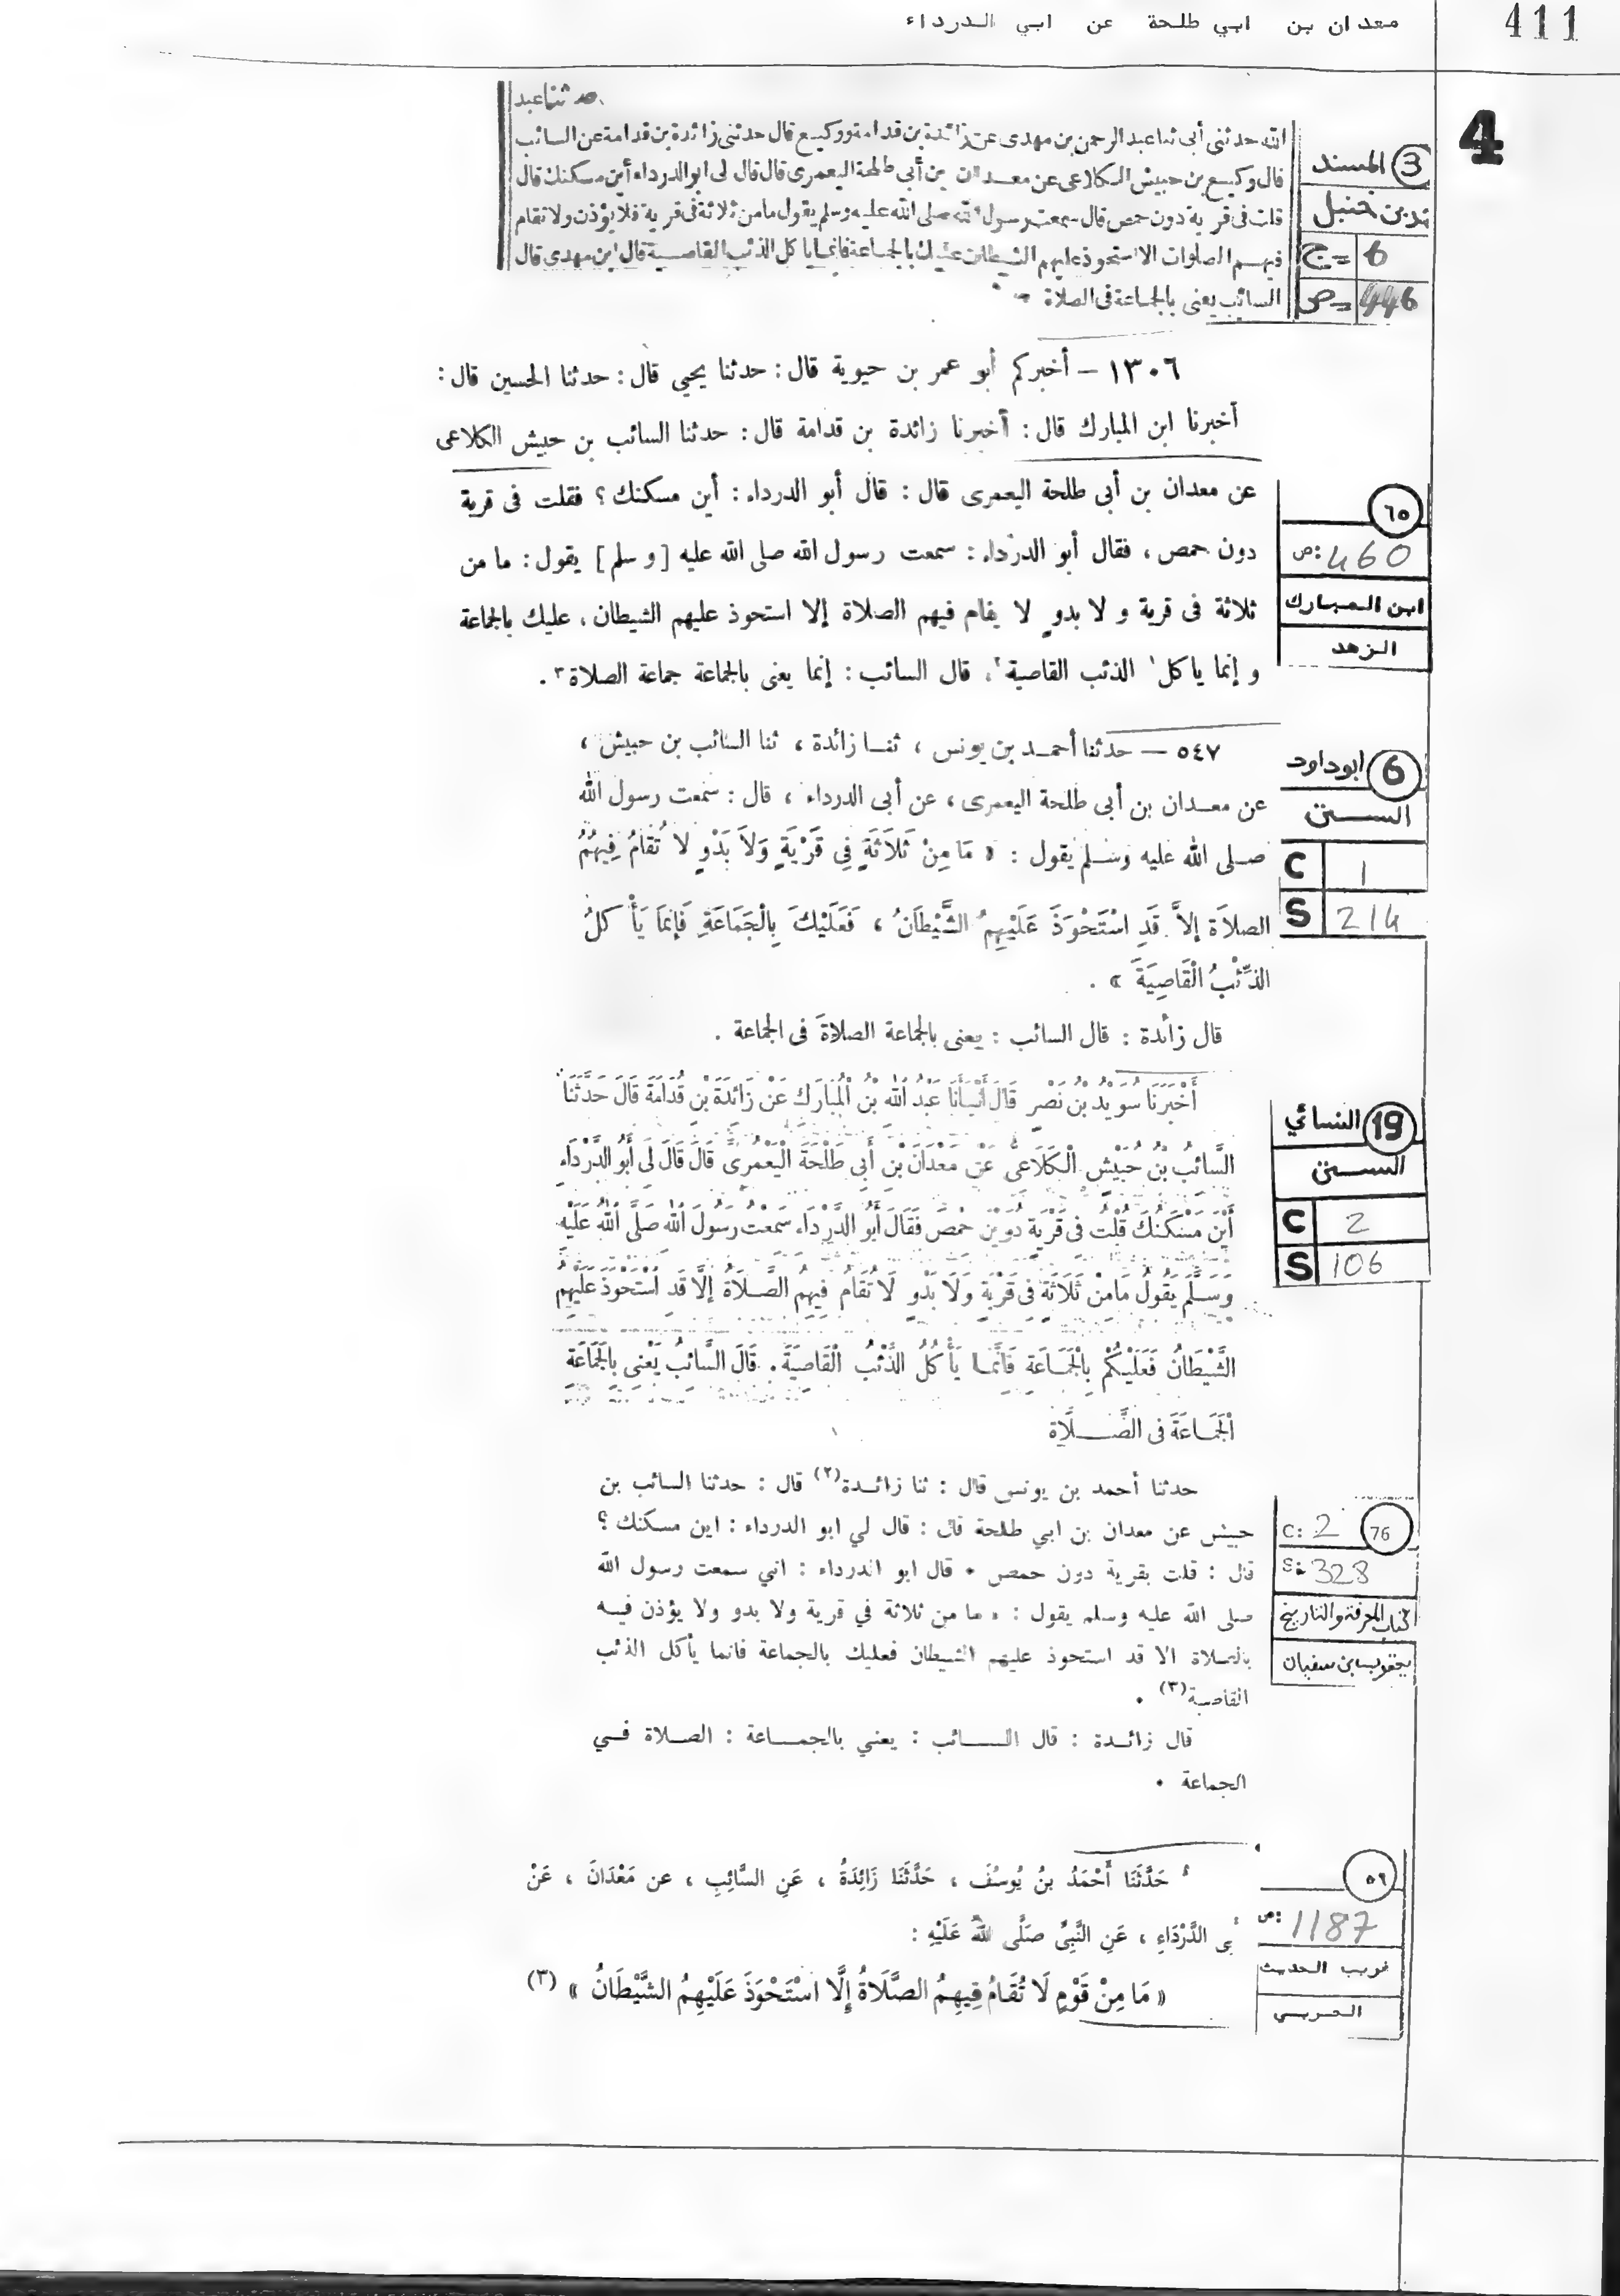 411
معدان بن ابي طلحة عن ابي الدرداء
4
3 المسند
بن حنبل
ج= 6
ص= 446
ثنا عبد
الله حدثني أبي ثنا عبد الرحمن بن مهدى عن زائدة بن قدامة ووكيع قال حدثنى زائدة بن قدامة عن السائب
قال وكيع بن حبيش الكلاعى عن معدان بن أبى طلحة اليعمرى قال قال لى ابو الدرداء أين مسكنك قال
قلت فى قرية دون حمص قال سمعت رسول الله صلى الله عليه وسلم يقول ما من ثلاثة فى قرية فلا يؤذن ولا تقام
فيهم الصلوات الا استحوذ عليهم الشيطان عليك بالجماعة فانما يا كل الذئب القاصية قال ابن مهدى قال
السائب يعنى بالجماعة فى الصلاة
١٣٠٦ – أخبركم أبو عمر بن حيوية قال: حدثنا يحيي قال: حدثنا الحسين قال:
أخبرنا ابن المبارك قال: أخبرنا زائدة بن قدامة قال: حدثنا السائب بن حبيش الكلاعى
عن معدان بن أبى طلحة اليعمرى قال: قال أبو الدرداء: أين مسكنك؟ فقلت فى قرية
دون حمص، فقال أبو الدرداء: سمعت رسول الله صلى الله عليه [و سلم] يقول: ما من
ثلاثة فى قرية و لا بدوٍ لا يقام فيهم الصلاة إلا استحوذ عليهم الشيطان، عليك بالجماعة
و إنما ياكل١ الذئب القاصية٢، قال السائب: إنما يعنى بالجماعة جماعة الصلاة٣.
٦٥
ص: 460
ابن المبارك
الزهد
٥٤٧ – حدثنا أحمد بن يونس، ثنا زائدة، ثنا السائب بن حبيش،
عن معدان بن أبى طلحة اليعمرى، عن أبى الدرداء، قال: سمعت رسول الله
صلى الله عليه وسلم يقول: « مَا مِنْ ثَلاَثَةٍ فِي قَرْيَةٍ وَلاَ بَدْوٍ لا تُقامُ فِيهُمُ
الصلاَة إلاَّ قَدِ اسْتَحْوَذَ عَلَيْهِمُ الشَّيْطَانُ، فَعَلَيْكَ بِالْجَمَاعَةِ فَإنمَا يَأْكلُ
الذِّئْبُ الْقَاصِيَةَ ».
قال زائدة: قال السائب: يعنى بالجماعة الصلاةَ فى الجماعة.
6 ابوداود
السنن
C 1
S 214
أَخْبَرَنَا سُوَيْدُ بْنُ نَصْرٍ قَالَ أَنْبَأَنَا عَبْدُ اللهِ بْنُ الْمُبَارَكِ عَنْ زَائِدَةَ بْنِ قُدَامَةَ قَالَ حَدَّثَنَا
السَّائِبُ بْنُ حُبَيْشٍ الْكَلَاعِىُّ عَنْ مَعْدَانَ بْنِ أَبِى طَلْحَةَ الْيَعْمُرِىِّ قَالَ قَالَ لِى أَبُو الدَّرْدَاءِ
أَيْنَ مَسْكَنُكَ قُلْتُ فِى قَرْيَةٍ دُوَيْنَ حِمْصَ فَقَالَ أَبُو الدَّرْدَاءِ سَمِعْتُ رَسُولَ اللهِ صَلَّى اللهُ عَلَيْهِ
وَسَلَّمَ يَقُولُ مَا مِنْ ثَلَاثَةٍ فِى قَرْيَةٍ وَلَا بَدْوٍ لَا تُقَامُ فِيهِمُ الصَّلَاةُ إِلَّا قَدِ اسْتَحْوَذَ عَلَيْهِمُ
الشَّيْطَانُ فَعَلَيْكُمْ بِالْجَمَاعَةِ فَإِنَّمَا يَأْكُلُ الذِّئْبُ الْقَاصِيَةَ. قَالَ السَّائِبُ يَعْنِى بِالْجَمَاعَةِ
الْجَمَاعَةَ فِى الصَّلَاةِ
19 النسائي
السنن
C 2
S 106
حدثنا أحمد بن يونس قال: ثنا زائدة(٢) قال: حدثنا السائب بن
حبيش عن معدان بن ابي طلحة قال: قال لي ابو الدرداء: اين مسكنك؟
قال: قلت بقرية دون حمص • قال ابو الدرداء: اني سمعت رسول الله
صلى الله عليه وسلم يقول: « ما من ثلاثة في قرية ولا بدو ولا يؤذن فيه
بالصلاة الا قد استحوذ عليهم الشيطان فعليك بالجماعة فانما يأكل الذئب
القاصية(٣) •
قال زائدة: قال السائب: يعني بالجماعة: الصلاة في
الجماعة •
76 C: 2
S: 328
كتاب المعرفة والتاريخ
يعقوب بن سفيان
حَدَّثَنَا أَحْمَدُ بنُ يُوسُفَ، حَدَّثَنَا زَائِدَةُ، عَنِ السَّائِبِ، عن مَعْدَانَ، عَنْ
بى الدَّرْدَاءِ، عَنِ النَّبِىِّ صَلَّى اللهُ عَلَيْهِ:
« مَا مِنْ قَوْمٍ لَا تُقَامُ فِيهِمُ الصَّلَاةُ إِلَّا اسْتَحْوَذَ عَلَيْهِمُ الشَّيْطَانُ » (٣)
٥٩
ص: 1187
غريب الحديث
الحربي